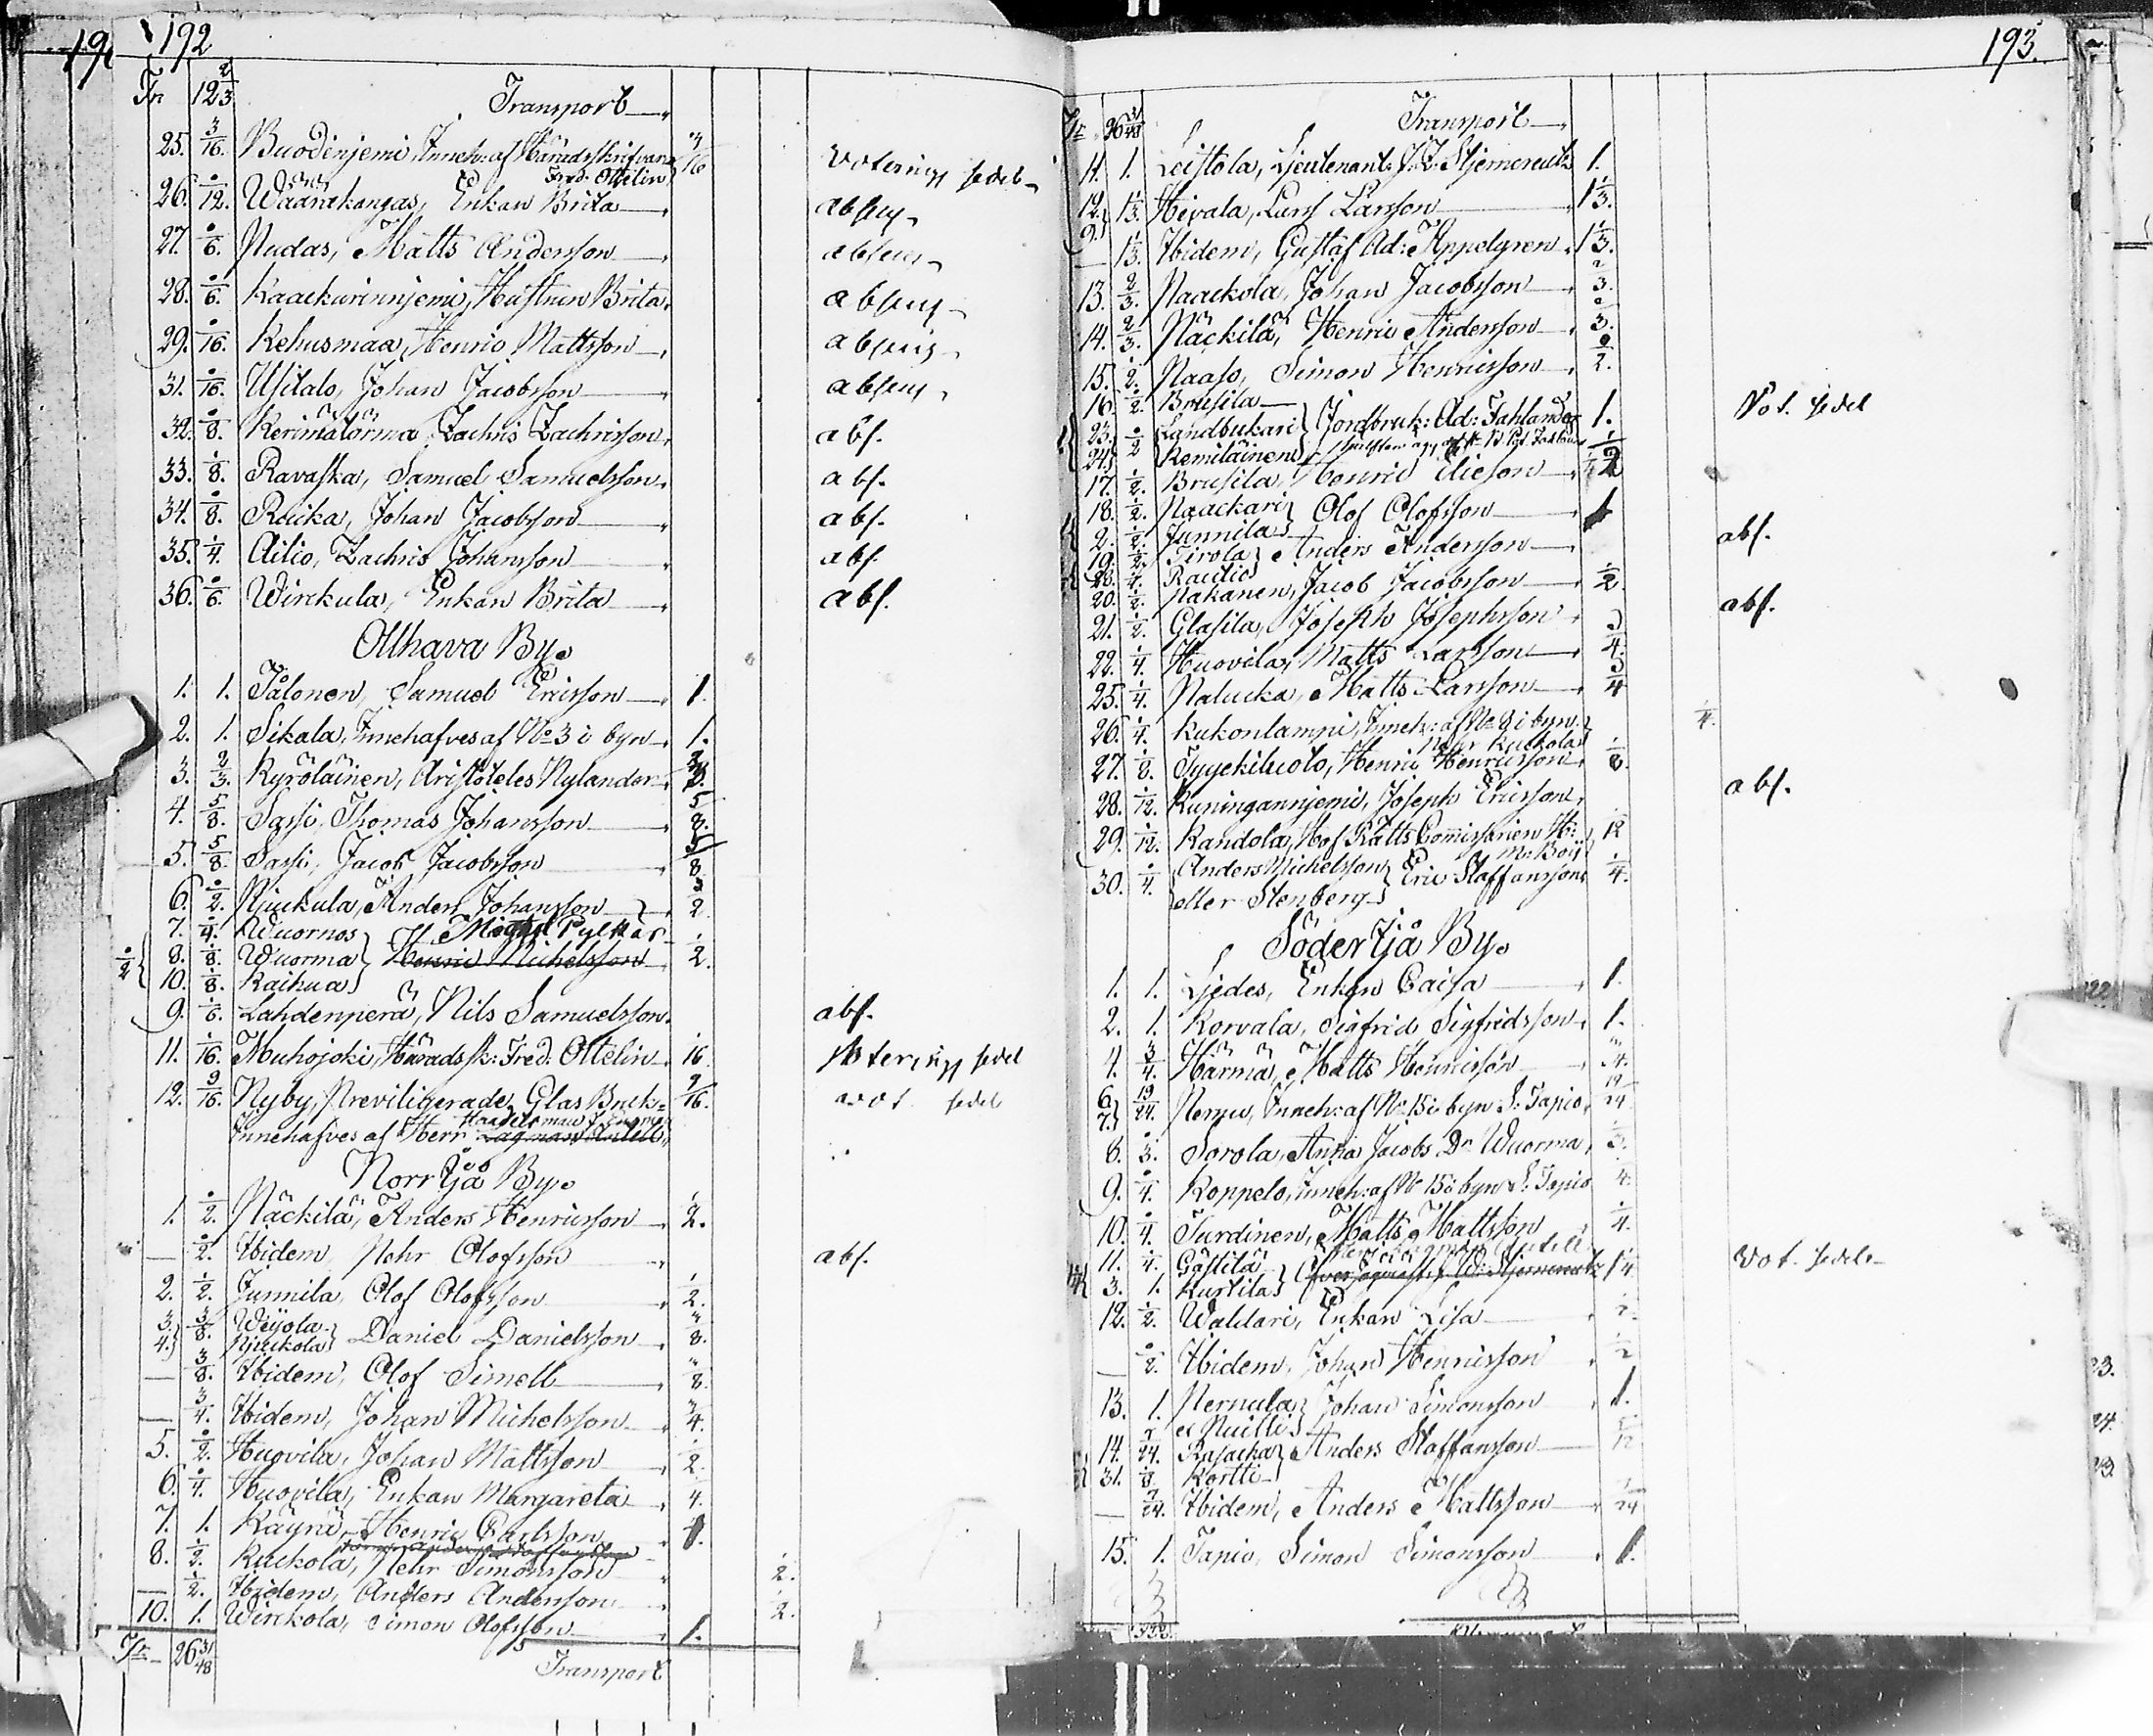 192
Tr 12 2/3 Transport
25. 3/16. Buodinjemi, Inneh: af Häradsskrifvaren 3/16 Voterings sedel
Fred. Ottelin
26. 1/12. Wäänekangas, Enkan Brita absens
27. 1/6. Nudas, Matts Andersson absens
28. 1/6. Kaackurinnjemi, Hustrun Brita. absens
29. 1/16. Kehusmaa, Henric Mattsson absens
31. 1/16. Usitalo, Johan Jacobsson absens
32. 1/8. Kerimälörmä, Zachris Zachrisson abs.
33. 1/8. Ravaska, Samuel Samuelsson abs.
34. 1/8. Rauka, Johan Jacobsson abs.
35. 1/4 Ailio, Zachris Johansson abs.
36. 1/6. Wirckula, Enkan Brita abs.
Olhava By.
1. 1. Jålonen, Samuel Ericsson 1.
2. 1. Sikala, Innehafves af No 3 i byn 1.
3. 2/3. Kyröläinen, Aristoteles Nylander 2/3.
4. 5/8. Sassi, Thomas Johansson 5/8.
5. 5/8. Sassi, Jacob Jacobsson 5/8
6. 1/2. Niukula, Anders Johansson 1/2
7. 1/4. Wuornos
8. 1/8. Wuorma Henric Michelsson 1/2.
10. 1/8. Kaihua
9. 1/6. Lahdenperä, Nils Samuelsson. abs.
11. 1/16. Muhojoki, Häradssk: Fred: Ottelin 1/16 Voterings sedel
12. 9/16. Nyby, Previligerade Glas Bruk 9/16. vot sedel
Handelsman
Innehafves af Herr
Norr Ijå By.
1. 1/2. Näckilä, Anders Henricsson 1/2.
— 1/2. Ibidem, Pehr Olofsson abs.
2. 1/2. Junnila, Olof Olofsson 1/2.
3. 3/8. Weijola
4. Daniel Danielsson 3/8.
— 3/8. Ibidem, Olof Simell 3/8.
— 3/4. Ibidem, Johan Michelsson 3/4.
5. 1/2. Huovila, Johan Mattsson 1/2
6. 1/4. Huovila, Enkan Margareta 1/4.
7. 1. Käyrä, Henric Carlsson 1.
8. 1/2. Kuckola, Pehr Simonsson 1/2.
— 1/2. Ibidem, Anders Andersson 1/2.
10. 1. Wirckola, Simon Olofsson 1.
Tr 26 31/48 Transport
193.
Tr 26 31/48 Transport
11. 1. Leistola, Lieutenant J. F. Stjerncreutz 1.
12. 1 1/3. Hivala, Lars Larsson 1 1/3.
9.
— 1 1/3. Ibidem, Gustaf Ad: Appelgren 1 1/3.
13. 2/3. Naackola, Johan Jacobsson 2/3.
14. 2/3. Näckilä, Henric Andersson 2/3.
15. 1/2. Naaso, Simon Henricsson 1/2.
16. 1/2. Brusila
23. 1/2 Landbukari Jordbruk: Ad: Fahlander 1. Vot. sedel
24. Kemiläinen
17. 1/2. Brusila, Henric Ericson 1/2
18. 1/2. Naackari Olof Olofsson 1
2. 1/2. Junnila
19. 1/2. Tirola Anders Andersson abs.
28. 1/4. Rautio
20. 1/2. Hakanen, Jacob Jacobsson 1/2
21. 1/2. Glasila, Joseph Josephsson abs.
22. 1/4. Huovila, Matts Larsson 1/4.
25. 1/4. Nalucka, Matts Larsson 1/4
26. 1/4. Kukonlampi, Inneh: af No 8 i byn 1/4.
Pehr Kuckola
27. 1/8. Tyyckiluoto, Henric Henricsson 1/8.
28. 1/12. Kuningannjemi, Joseph Ericsson abs.
29. 1/12. Kandola, Hof Rätts Comissarien H: 1/12
M: Boij
30. 1/4. Anders Michelsson Eric Staffansson 1/4.
eller Stenberg
Söder Ijå By.
1. 1. Liedes, Enkan Caisa 1.
2. 1. Korvala, Sigfrid Sigfridsson 1.
4. 3/4. Härmä, Matts Henricsson 3/4.
6. 19/24. Inneh: af No 15 i byn S: Tapio 19/24
7.
8. 1/3. Sorola, Anna Jacobs Dr Wuorma 1/3.
9. 1/4. Koppelo, Inneh: af No 15 i byn S: Tapio 1/4.
10. 1/4. Turdinen, Matts Mattsson 1/4.
11. 1/4. Gästilä 1 1/4 Vot. sedel
3. 1. Kurtila
12. 1/2. Waldari, Enkan Lisa 1/2.
— 1/2. Ibidem, Johan Henricsson 1/2
13. 1. Johan Simonsson 1.
14. 7/24. Rasacka Anders Staffansson
31. 1/8. Kortti
— 7/24. Ibidem, Anders Mattsson 7/24
15. 1. Tapio, Simon Simonsson 1.